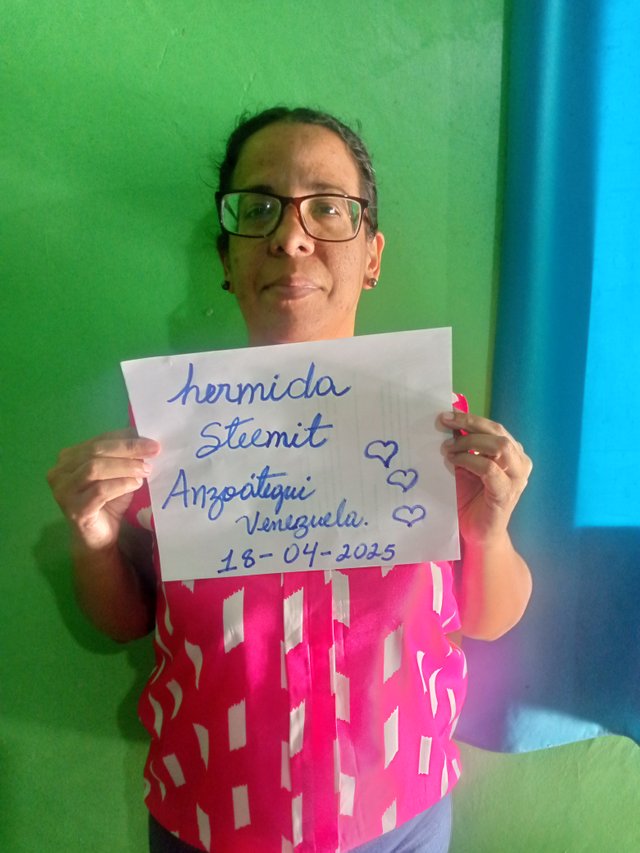 hermida
Steemit
Anzoátegui
Venezuela.
18-04-2025